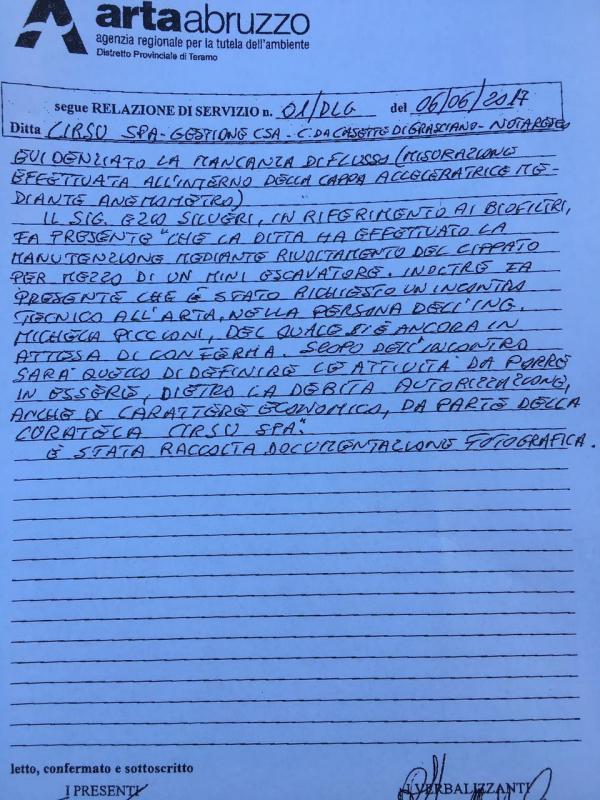 artaabruzzo
agenzia regionale per la tutela dell'ambiente
Distretto Provinciale di Teramo
segue RELAZIONE DI SERVIZIO n. 01/DLG del 06/06/2017
Ditta CIRSU SPA - GESTIONE CSA - C.DA CASETTE DI GRASCIANO - NOTARESCO
EVIDENZIATO LA MANCANZA DI FLUSSO (MISURAZIONE
EFFETTUATA ALL'INTERNO DELLA CAPPA ACCELERATRICE ME-
DIANTE ANEMOMETRO)
IL SIG. EZIO SILVERI, IN RIFERIMENTO AI BIOFILTRI,
FA PRESENTE "CHE LA DITTA HA EFFETTUATO LA
MANUTENZIONE MEDIANTE RIVOLTAMENTO DEL CIPPATO
PER MEZZO DI UN MINI ESCAVATORE. INOLTRE FA
PRESENTE CHE È STATO RICHIESTO UN INCONTRO
TECNICO ALL'ARTA, NELLA PERSONA DELL'ING.
MICHELA PICCIONI, DEL QUALE SI È ANCORA IN
ATTESA DI CONFERMA. SCOPO DELL'INCONTRO
SARÀ QUELLO DI DEFINIRE LE ATTIVITÀ DA PORRE
IN ESSERE, DIETRO LA DEBITA AUTORIZZAZIONE,
ANCHE DI CARATTERE ECONOMICO, DA PARTE DELLA
CURATELA CIRSU SPA."
È STATA RACCOLTA DOCUMENTAZIONE FOTOGRAFICA.
letto, confermato e sottoscritto
I PRESENTI I VERBALIZZANTI